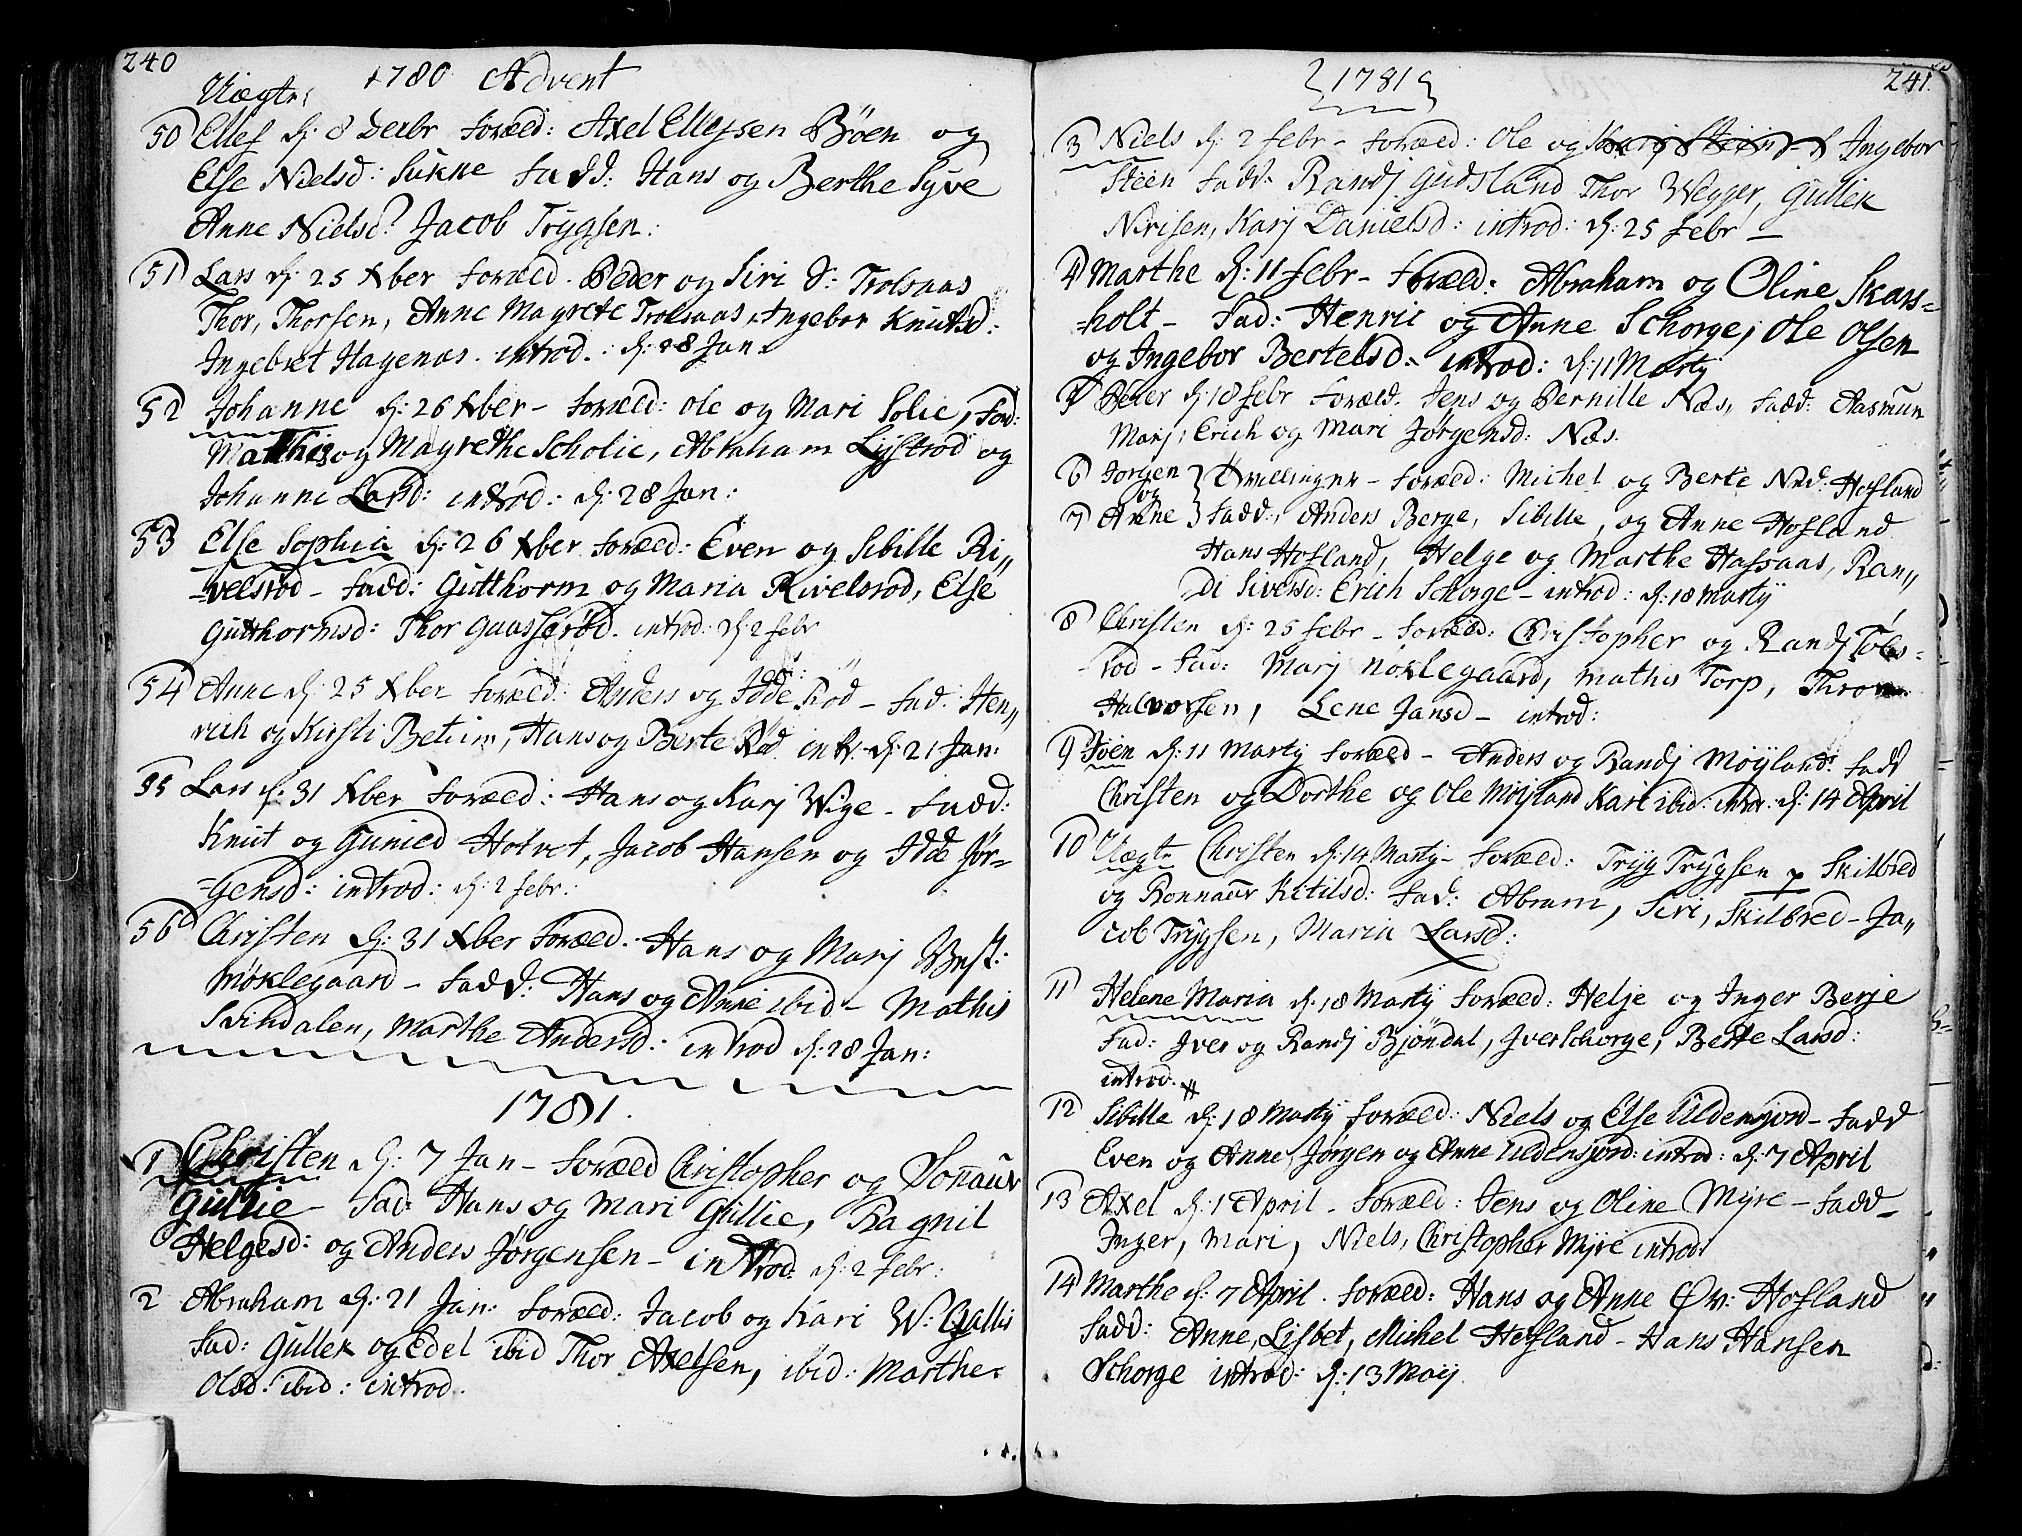 240
1780 Advent
Uægte
50 Ellef d: 8 Decbr Foræld: Axel Ellefsen Bøen og
Else Nielsd: Sukke Fadd: Hans og Berthe Syve
Anne Nielsd: Jacob Trygsen:
51 Lars d: 25 Xber Foræld. Peder og Siri S: Trolsaas
Thor, Thorsen, Anne Magrete Trolsaas, Ingebor Knutsd:
Ingebret Hagenæs. introd.: d: 28 Jan:
52 Johanne d: 26 Xber - Foræld: Ole og Mari Solie, Fad:
Mathis og Magrethe Scholie, Abraham Lystrod og
Johanne Larsd: introd: d: 28 Jan:
53 Else Sophia d: 26 Xber Foræld: Even og Sibille Ri„
=velsrød - Fadd: Gutthorm og Maria Rivelsrod, Else
Gutthormsd: Thor Gaasserød. introd: d: 2 febr
54 Anne d: 25 Xber Foræld: Anders og Idde Rød - Fad: Hen„
rich og Kirsti Betum, Hans og Berte Rød intr. d: 21 Jan:
55 Lars d: 31 Xber Foræld: Hans og Karj Wige - Fadd:
Knut og Gunied Holvet, Jacob Hansen og Idde Jør=
=gensd: introd: d: 2 febr:
56 Christen d: 31 Xber Foræld: Hans og Marj Vest:
Nøklegaard - Fadd: Hans og Anne ibid - Mathis
Svindalen, Marthe Andersd: introd d: 28 Jan:
1781.
1 Christen d: 7 Jan - Foræld Christopher og Sonaur
Gullie - Fad: Hans og Mari Gullie, Ragnil
Helgesd: og Anders Jørgensen - introd: d: 2 febr:
2 Abraham d: 21 Jan: Foræld: Jacob og Kari W: Gallis
Fad: Gullek og Edel ibid Thor Axelsen, ibid: Marthe
Olsd: ibid: introd.
1781
241
3 Niels d: 2 febr - Foræld: Ole og Ingebor
Steen Fadd. Randj Gudsland Thor Wegger, Gullik
Nirisen, Karj Danielsd: introd: d: 25 febr -
4 Marthe d: 11 febr - Foræld: Abraham og Oline Skars=
holt - Fad: Henric og Anne Schorge, Ole Olsen
og Ingebor Bertelsd: introd: d: 11 Marty
5 Peder d: 18 febr Foræld. Jens og Pernille Næs, Fadd: Aasmun
Marj, Erich og Mari Jørgensd: Næs.
6 Jorgen og } Tvillinger - Foræld: Michel og Berte Ned: Hofland
7 Anne } Fadd:, Anders Berge, Sibille, og Anne Hofland
Hans Hofland, Helge og Marthe Hassaas, Ran„
di Siversd: Erich Schorge - introd: d: 18 Marty
8 Christen d: 25 febr - Foræld: Christopher og Randj Tobs=
rod - Fad: Marj Nøklegaard, Mathis Torp, Thron
Halvorsen, Lene Jansd - introd:
9 Joen d: 11 Marty Foræld - Anders og Randj Møyland: Fadd
Christen og Dorthe og Ole Møyland Kari ibid: intr: d: 14 April
10 Uægte Christen d: 14 Marty - Foræld: Tryg Trygsen p Skilbred
og Ronnaur Ketilsd: Fad: Abram, Siri, Skilbred - Ja„
cob Trygsen, Maria Larsd:
11 Helene Maria d: 18 Marty Foræld: Helje og Inger Berje
Fad: Iver og Randj Bjøndal, Iver Schorge, Berte Larsd:
introd.
12 Sibille d: 18 Marty Foræld: Niels og Else Uldensjord - Fadd
Even og Anne, Jørgen og Anne Uldensjord: introd: d: 7 April
13 Axel d: 1 April - Foræld: Jens og Oline Myre - Fadd -
Inger, Mari, Niels, Christopher Myre introd:
14 Marthe d: 7 April. Foræld: Hans og Anne Øv: Hofland
Fadd: Anne, Lisbet, Michel Hofland - Hans Hansen
Schorge introd: d: 13 May